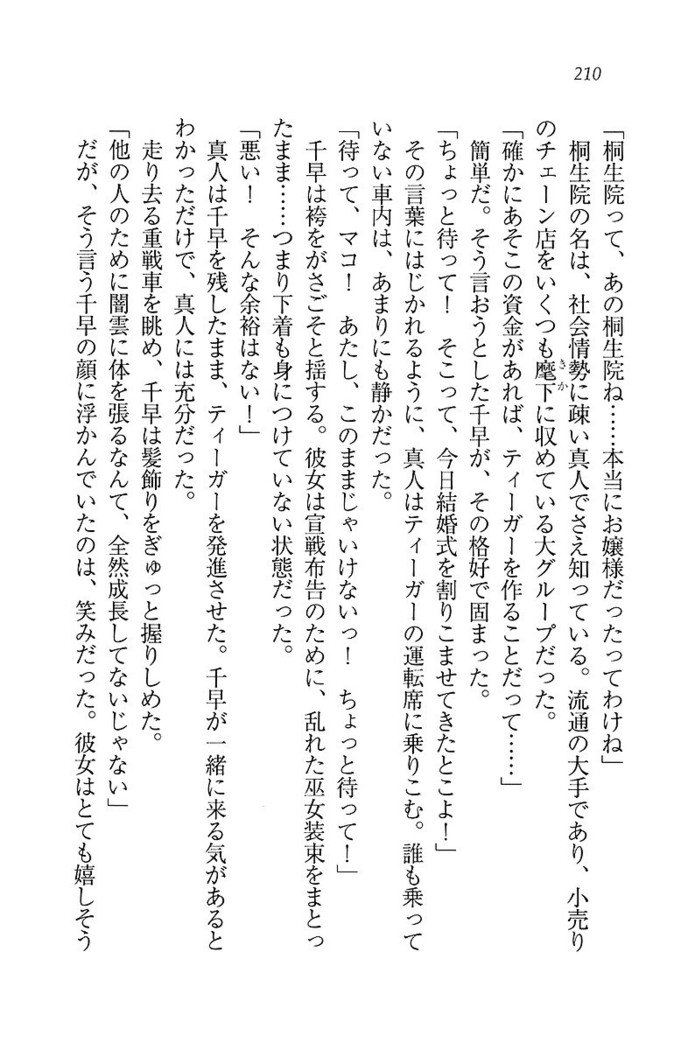 210
「桐生院って、あの桐生院ね……本当にお嬢様だったってわけね」
　桐生院の名は、社会情勢に疎い真人でさえ知っている。流通の大手であり、小売り
のチェーン店をいくつも麾下に収めている大グループだった。
「確かにあそこの資金があれば、ティーガーを作ることだって……」
　簡単だ。そう言おうとした千早が、その格好で固まった。
「ちょっと待って！　そこって、今日結婚式を割りこませてきたとこよ！」
　その言葉にはじかれるように、真人はティーガーの運転席に乗りこむ。誰も乗って
いない車内は、あまりにも静かだった。
「待って、マコ！　あたし、このままじゃいけないっ！　ちょっと待って！」
　千早は袴をがさごそと揺する。彼女は宣戦布告のために、乱れた巫女装束をまとっ
たまま……つまり下着も身につけていない状態だった。
「悪い！　そんな余裕はない！」
　真人は千早を残したまま、ティーガーを発進させた。千早が一緒に来る気があると
わかっただけで、真人には充分だった。
　走り去る重戦車を眺め、千早は髪飾りをぎゅっと握りしめた。
「他の人のために闇雲に体を張るなんて、全然成長してないじゃない」
　だが、そう言う千早の顔に浮かんでいたのは、笑みだった。彼女はとても嬉しそう
きか